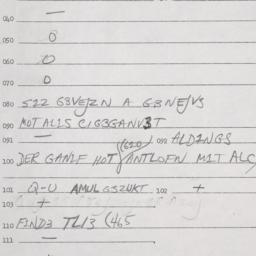 040 —
050 0
060 0
070 0
080 522 G3VEJZN A G3NEJVS
090 MOTALIS CIG3GANV3T
091 — 092 ALDINGS
100 DER GANIF HOT (620) ANTLOFN MIT ALC
101 Q-U AMULGSZUKT 102 +
103 +
110 FIND3 TL13 (465
111 —